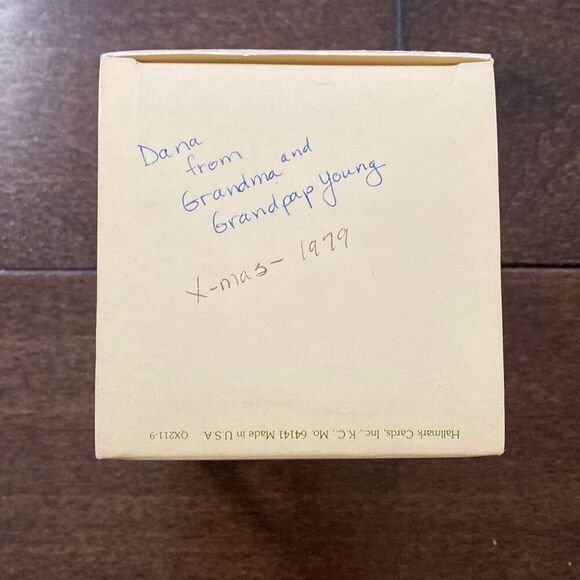 Dana
from
Grandma and
Grandpap Young
X-mas- 1979
Hallmark Cards, Inc., K.C., Mo. 64141 Made in U.S.A. QX211-9